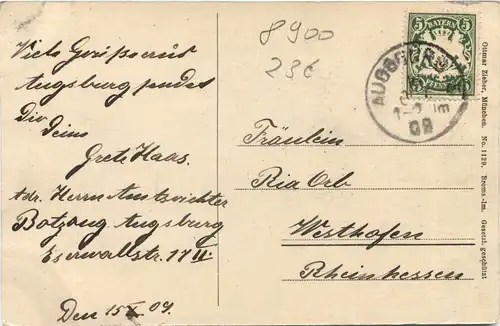 Viele Grüße aus
Augsburg sendet
Dir
Deine
Grete Haas.
Adr. Herrn Amtsrichter
Botzong Augsburg
17 II.
Den 15 X 09.
8900
23€
5 BAYERN 5
AUGSBURG
09
Fräulein
Ria Orb
Westhofen
Rheinhessen
Ottmar Zieher, München. No. 1129. Broms.-Im. Gesetzl. geschützt